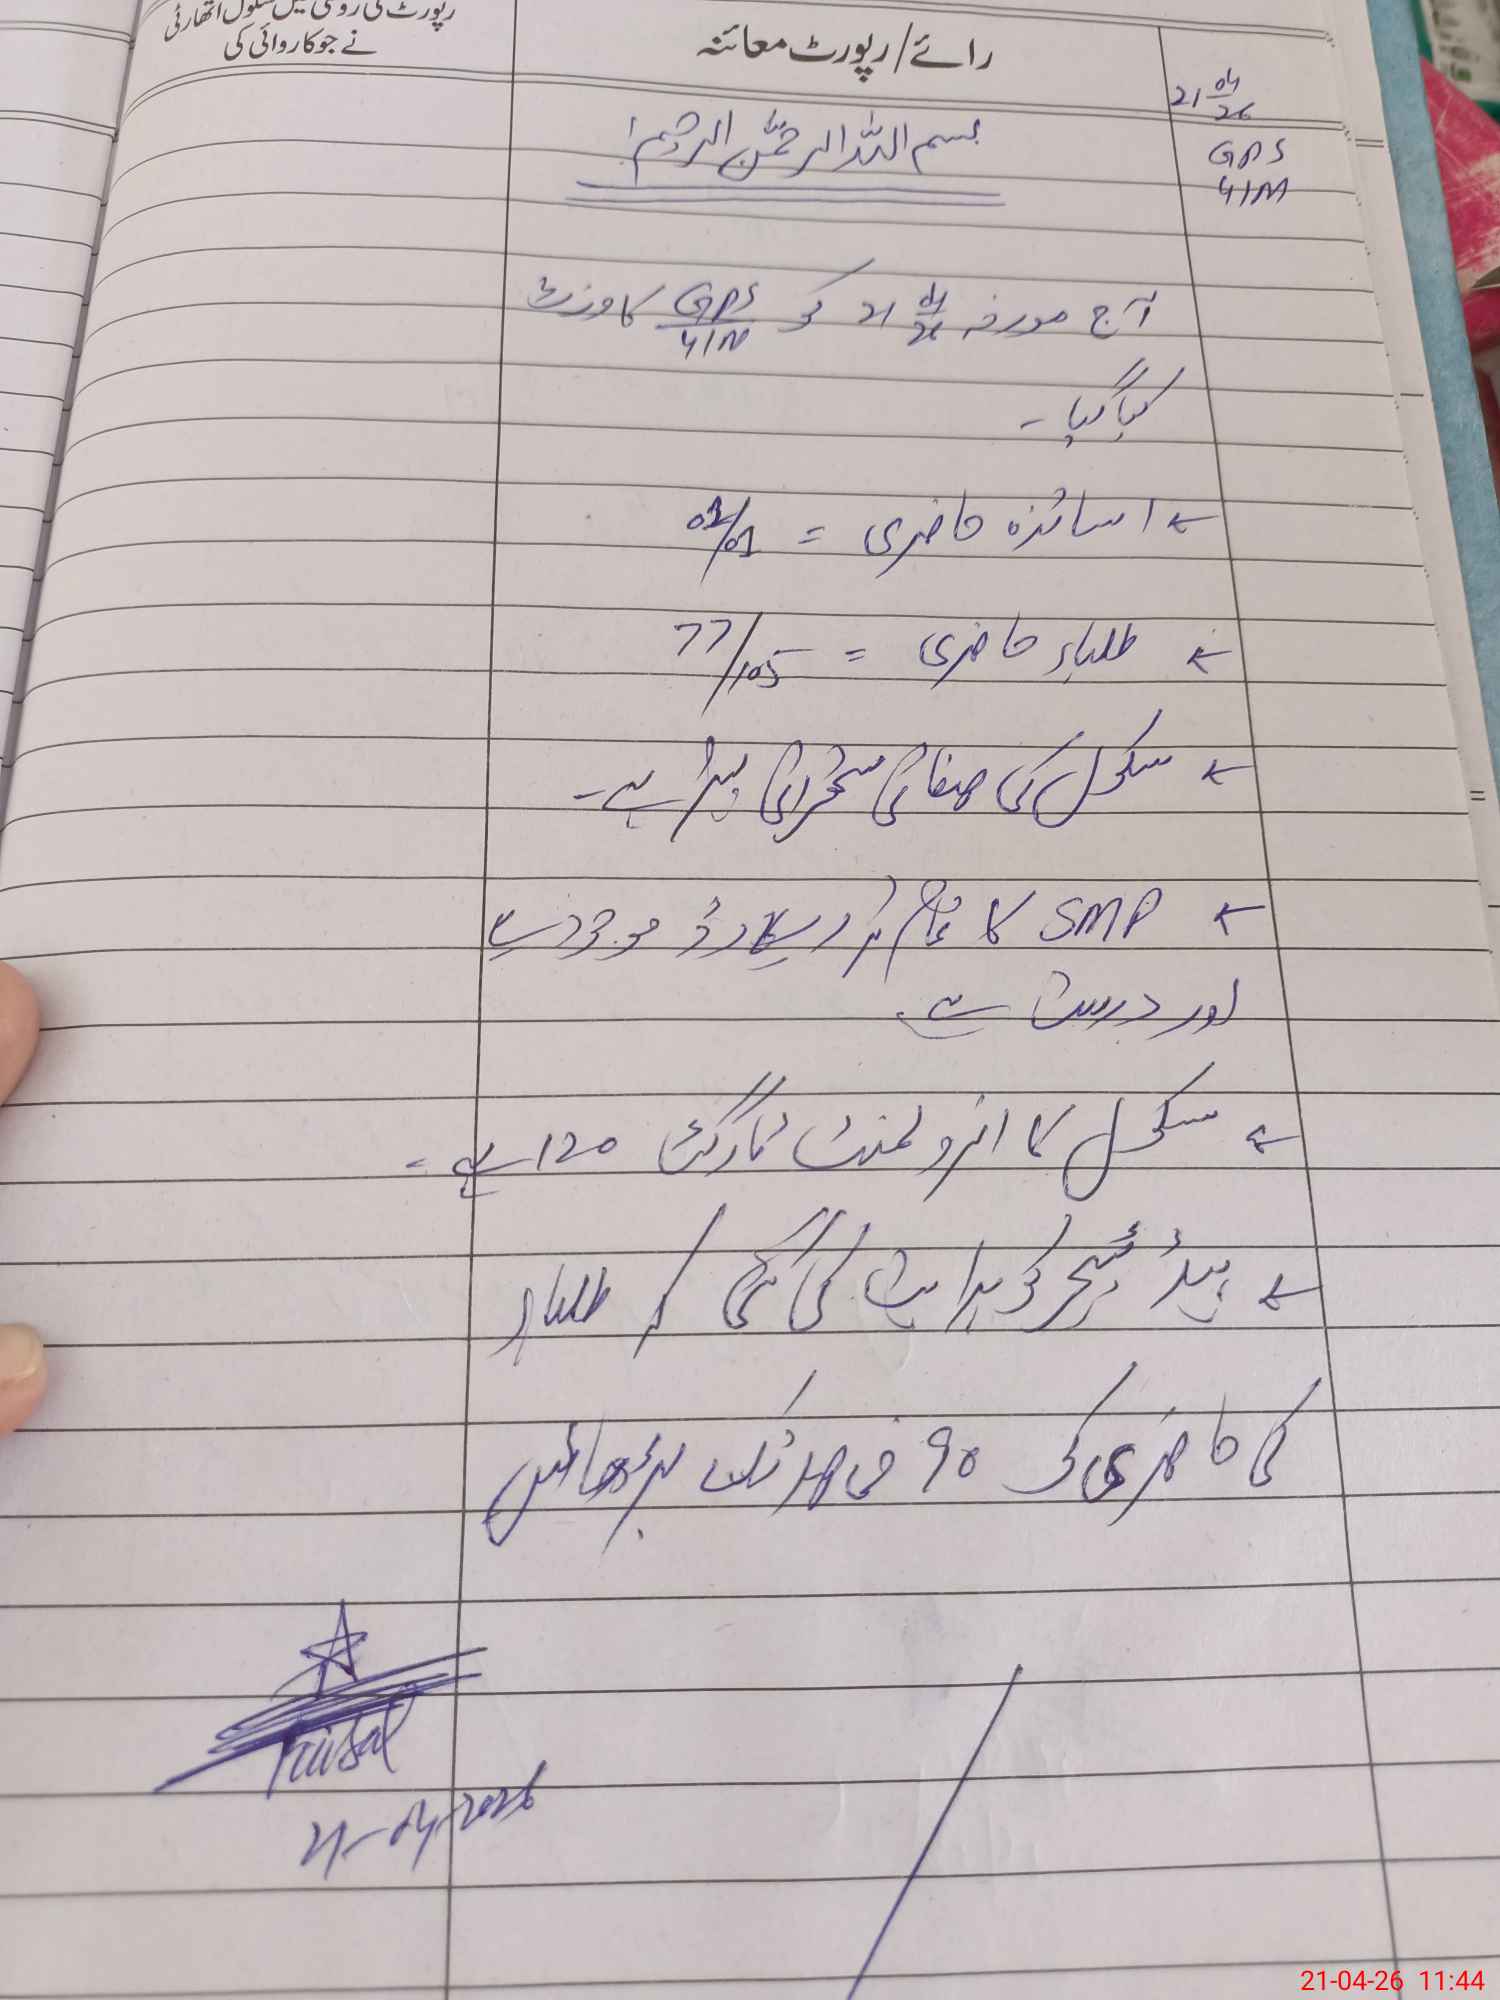 رپورٹ کی روشنی میں سکول اتھارٹی
نے جو کاروائی کی
رائے/رپورٹ معائنہ
21 04/26
GPS
41M
بسم اللہ الرحمٰن الرحیم
آج مورخہ 21 04/26 کو GPS/41M کا وزٹ
کیا گیا ۔
← اساتذہ حاضری = 01/01
← طلباء حاضری = 77/105
← سکول کی صفائی ستھرائی بہتر ہے ۔
← SMP کا تمام تر ریکارڈ موجود ہے
اور درست ہے
← سکول کا انرولمنٹ ٹارگٹ 120 ہے ۔
← ہیڈ ٹیچر کو ہدایت کی گئی کہ طلباء
کی حاضری کو 90 فی صد تک بڑھائیں
Faisal
21-04-2026
21-04-26 11:44